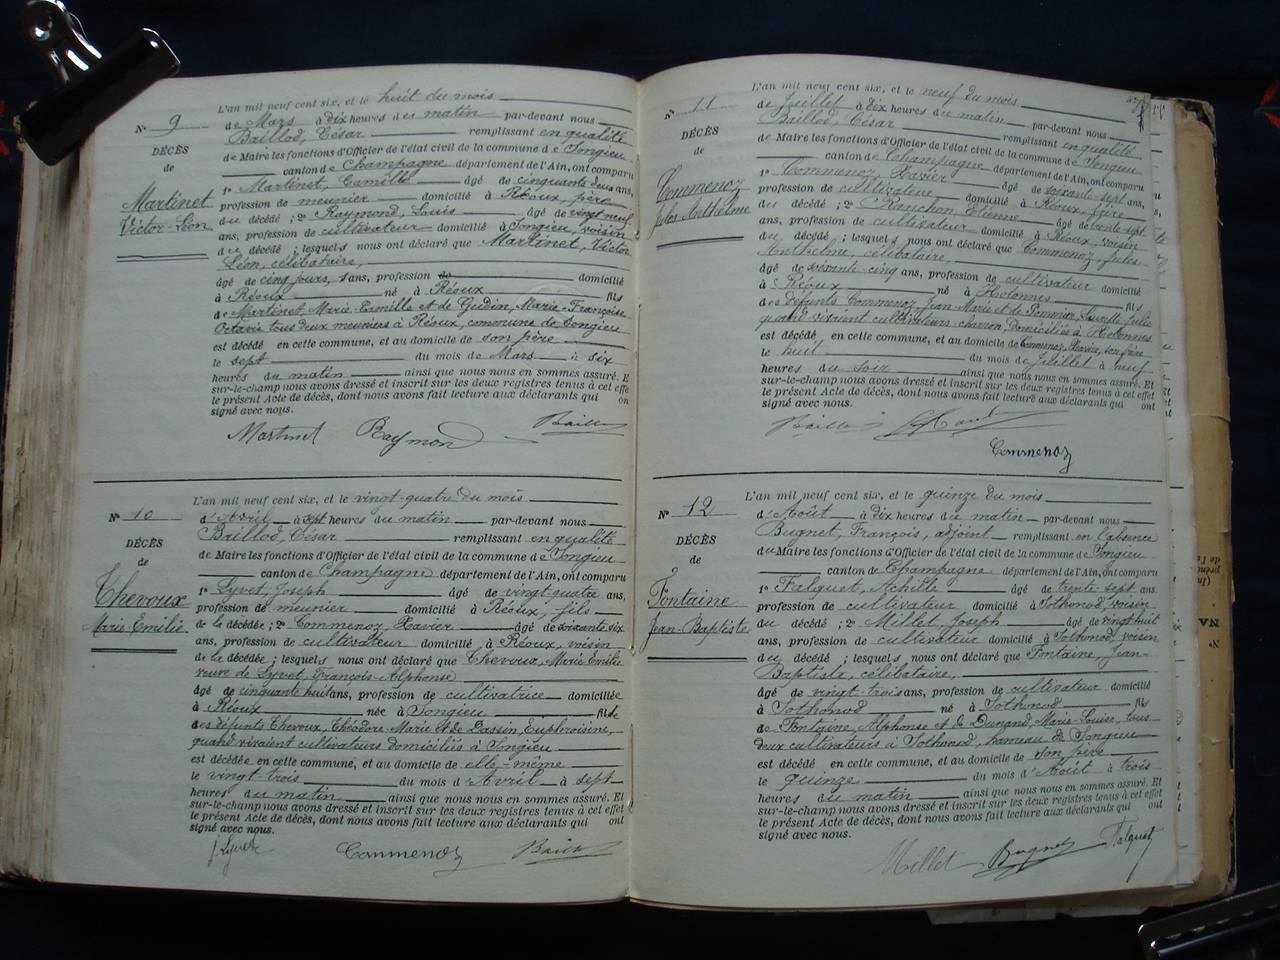 N° 9
DÉCÈS
de
Martinet
Victor-Léon
L'an mil neuf cent six, et le huit du mois
de Mars à dix heures du matin par-devant nous
Baillod, César remplissant en qualité
de Maire les fonctions d'Officier de l'état civil de la commune de Songieu
canton de Champagne département de l'Ain, ont comparu
1° Martinet, Camille âgé de cinquante deux ans,
profession de meunier domicilié à Réoux, père
du décédé ; 2° Raymond, Louis âgé de vingt neuf
ans, profession de cultivateur domicilié à Songieu, voisin
du décédé ; lesquels nous ont déclaré que Martinet, Victor
Léon, célibataire,
âgé de cinq jours, ans, profession de domicilié
à Réoux né à Réoux fils
de Martinet, Marie-Camille et de Gudin, Marie-Françoise
Octavie tous deux meuniers à Réoux, commune de Songieu
est décédé en cette commune, et au domicile de son père
le sept du mois de Mars à six
heures du matin ainsi que nous nous en sommes assuré. Et
sur-le-champ nous avons dressé et inscrit sur les deux registres tenus à cet effet
le présent Acte de décès, dont nous avons fait lecture aux déclarants qui ont
signé avec nous.
Martinet Raymond Baillod
N° 10
DÉCÈS
de
Thevoux
Marie-Emilie
L'an mil neuf cent six, et le vingt-quatre du mois
d'Avril à sept heures du matin par-devant nous
Baillod, César remplissant en qualité
de Maire les fonctions d'Officier de l'état civil de la commune de Songieu
canton de Champagne département de l'Ain, ont comparu
1° Lyvet, Joseph âgé de vingt-quatre ans,
profession de meunier domicilié à Réoux, fils
de la décédée ; 2° Commenoz, Xavier âgé de soixante six
ans, profession de cultivateur domicilié à Réoux, voisin
de la décédée ; lesquels nous ont déclaré que Thevoux, Marie Emilie
veuve de Lyvet, François-Alphonse
âgé de cinquante huit ans, profession de cultivatrice domiciliée
à Réoux née à Songieu fille
des défunts Thevoux, Théodore-Marie et de Dassin Euphrosine,
quand vivaient cultivateurs domiciliés à Songieu
est décédée en cette commune, et au domicile de elle-même
le vingt-trois du mois d'Avril à sept
heures du matin ainsi que nous nous en sommes assuré. Et
sur-le-champ nous avons dressé et inscrit sur les deux registres tenus à cet effet
le présent Acte de décès, dont nous avons fait lecture aux déclarants qui ont
signé avec nous.
J. Lyvet Commenoz Baillod
N° 11
DÉCÈS
de
Commenoz
Jules Anthelme
L'an mil neuf cent six, et le neuf du mois
de Juillet à dix heures du matin par-devant nous
Baillod, César remplissant en qualité
de Maire les fonctions d'Officier de l'état civil de la commune de Songieu
canton de Champagne département de l'Ain, ont comparu
1° Commenoz, Xavier âgé de soixante sept ans,
profession de cultivateur domicilié à Réoux, frère
du décédé ; 2° Etienne âgé de trente sept
ans, profession de cultivateur domicilié à Réoux, voisin
du décédé ; lesquels nous ont déclaré que Commenoz, Jules
Anthelme, célibataire,
âgé de soixante-cinq ans, profession de cultivateur domicilié
à Réoux né à Hotonnes fils
des défunts Commenoz Jean Marie et de Julie
quand vivaient cultivateurs domiciliés à Hotonnes
est décédé en cette commune, et au domicile de Commenoz, Xavier, son frère
le huit du mois de Juillet à neuf
heures du soir ainsi que nous nous en sommes assuré. Et
sur-le-champ nous avons dressé et inscrit sur les deux registres tenus à cet effet
le présent Acte de décès, dont nous avons fait lecture aux déclarants qui ont
signé avec nous.
Baillod
Commenoz
N° 12
DÉCÈS
de
Fontaine
Jean-Baptiste
L'an mil neuf cent six, et le quinze du mois
d'Août à dix heures du matin par-devant nous
Bugnet, François, adjoint remplissant en l'absence
du Maire les fonctions d'Officier de l'état civil de la commune de Songieu
canton de Champagne département de l'Ain, ont comparu
1° Falquet, Achille âgé de trente-sept ans,
profession de cultivateur domicilié à Sothonod, voisin
du décédé ; 2° Millet, Joseph âgé de vingt huit
ans, profession de cultivateur domicilié à Sothonod, voisin
du décédé ; lesquels nous ont déclaré que Fontaine, Jean-
Baptiste, célibataire,
âgé de vingt-trois ans, profession de cultivateur domicilié
à Sothonod né à Sothonod fils
de Fontaine, Alphonse et de Dunand Marie-Louise, tous
deux cultivateurs à Sothonod, hameau de Songieu
est décédé en cette commune, et au domicile de son père
le quinze du mois d'Août à trois
heures du matin ainsi que nous nous en sommes assuré. Et
sur-le-champ nous avons dressé et inscrit sur les deux registres tenus à cet effet
le présent Acte de décès, dont nous avons fait lecture aux déclarants qui ont
signé avec nous.
Millet Bugnet Falquet